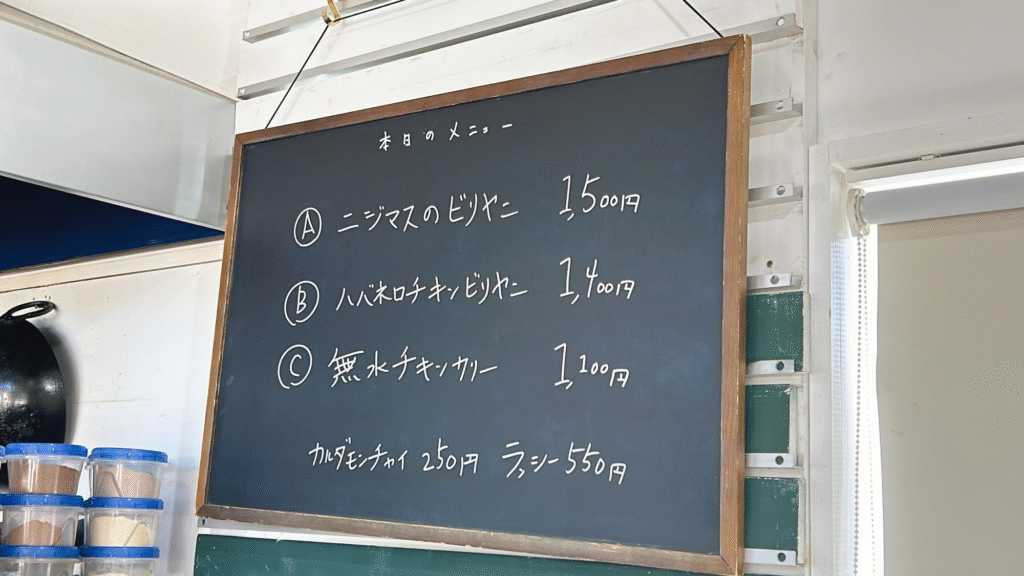 本日のメニュー
Ⓐ ニジマスのビリヤニ 1,500円
Ⓑ ハバネロチキンビリヤニ 1,400円
Ⓒ 無水チキンカリー 1,100円
カルダモンチャイ 250円 ラッシー 550円